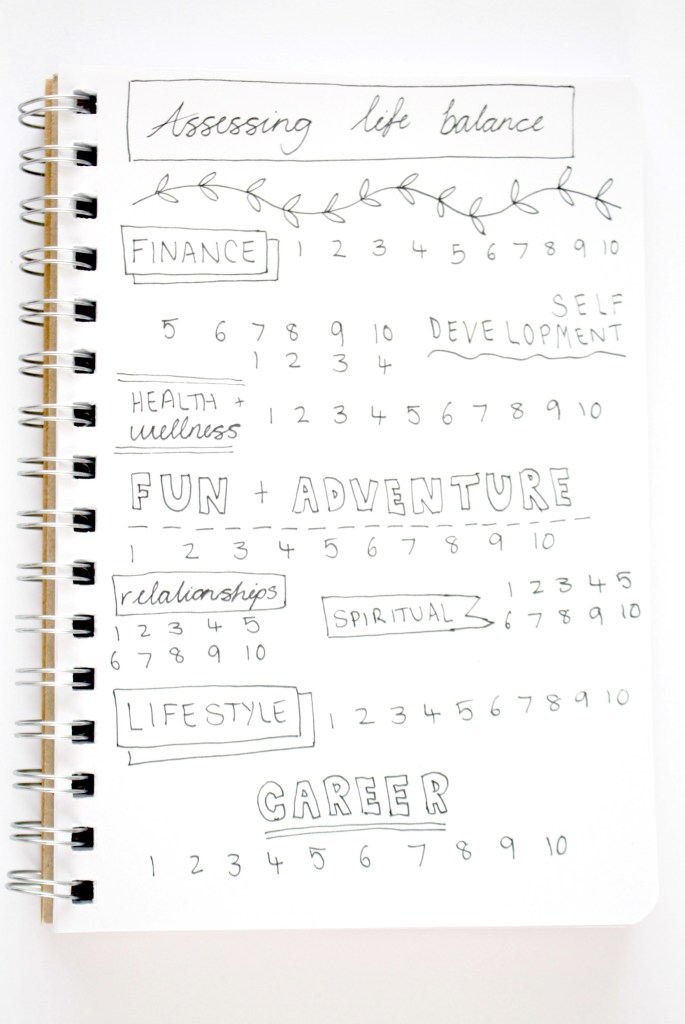 Assessing life balance
FINANCE 1 2 3 4 5 6 7 8 9 10
SELF
DEVELOPMENT
5 6 7 8 9 10
1 2 3 4
HEALTH +
wellness
1 2 3 4 5 6 7 8 9 10
FUN + ADVENTURE
1 2 3 4 5 6 7 8 9 10
relationships
1 2 3 4 5
6 7 8 9 10
SPIRITUAL
1 2 3 4 5
6 7 8 9 10
LIFESTYLE 1 2 3 4 5 6 7 8 9 10
CAREER
1 2 3 4 5 6 7 8 9 10